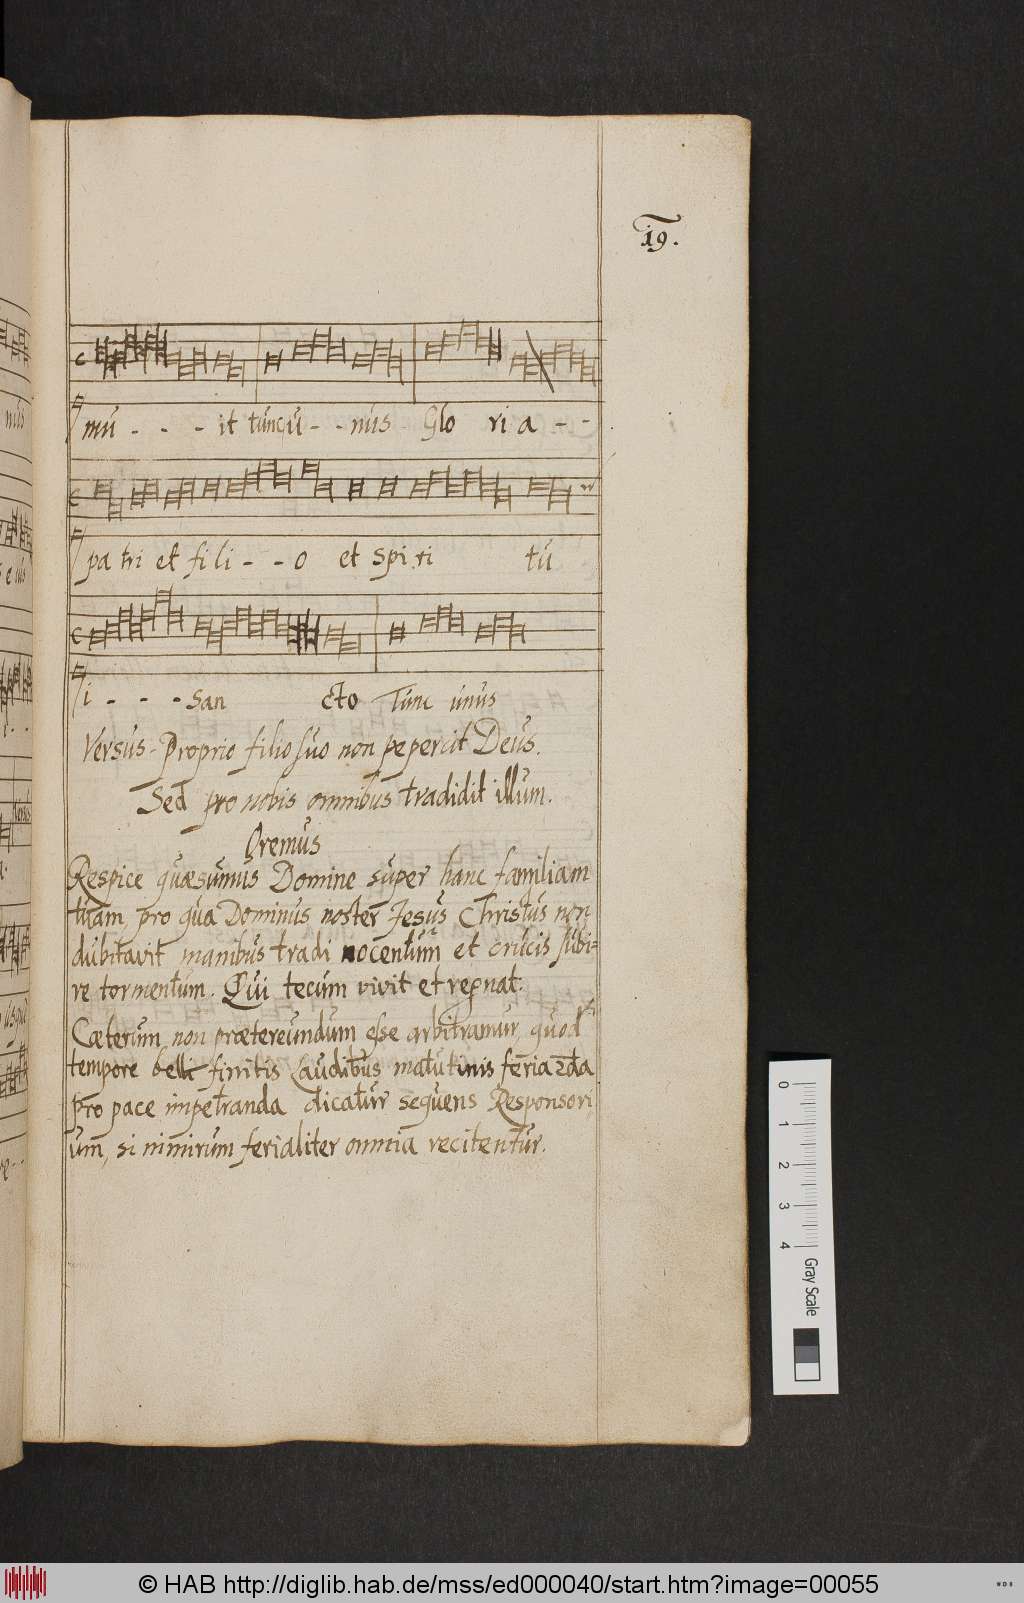 19.
mu - - - it tuncu - - nus Glo ri a - -
pa tri et fi li - - o et Spi ri tu
i - - - San cto Tunc unus
Versus - Proprio filio suo non pepercit Deus.
Sed pro nobis omnibus tradidit illum.
Oremus
Respice quæsumus Domine super hanc familiam
tuam pro qua Dominus noster Jesus Christus non
dubitavit manibus tradi nocentum et crucis subi-
re tormentum. Qui tecum vivit et regnat.
Cæterum non prætereundum esse arbitramur, quod
tempore belli finitis Laudibus matutinis feria 2da
pro pace impetranda dicatur sequens Responsori,
um, si nimirum ferialiter omnia recitentur.
0 1 2 3 4 Gray Scale
© HAB http://diglib.hab.de/mss/ed000040/start.htm?image=00055